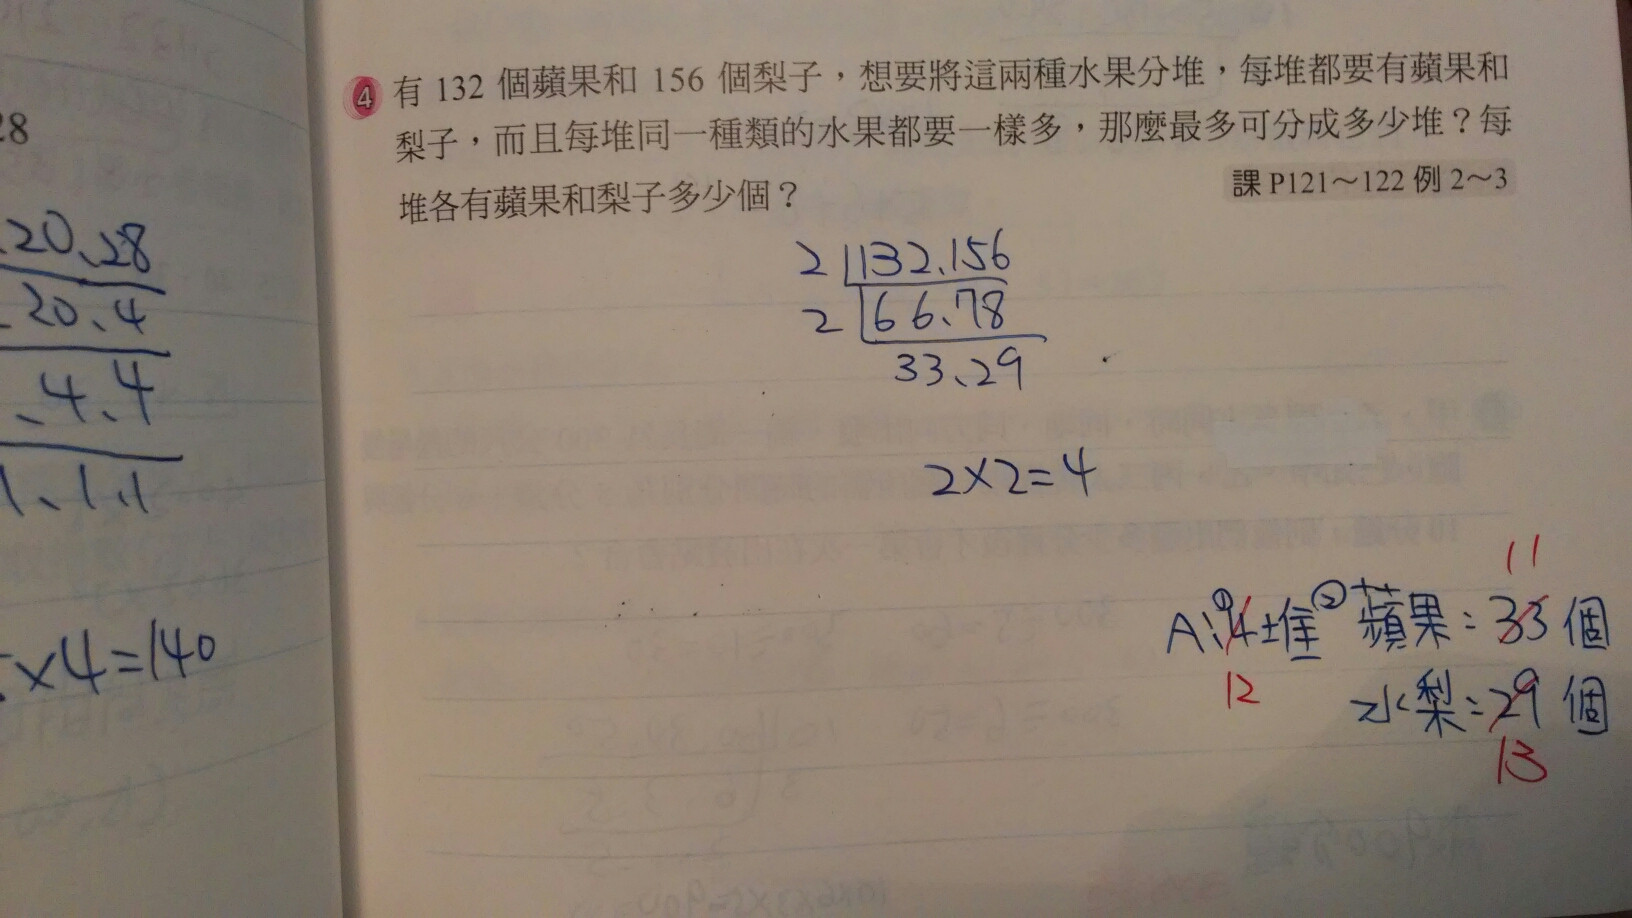 28
、20、28
20、4
、4、4
1、1、1
×4=140
4 有 132 個蘋果和 156 個梨子，想要將這兩種水果分堆，每堆都要有蘋果和
梨子，而且每堆同一種類的水果都要一樣多，那麼最多可分成多少堆？每
堆各有蘋果和梨子多少個？
課 P121～122 例 2～3
2 132、156
2 66、78
33、29
2×2=4
11
A：①4堆 ②蘋果：33個
12
水梨：29個
13